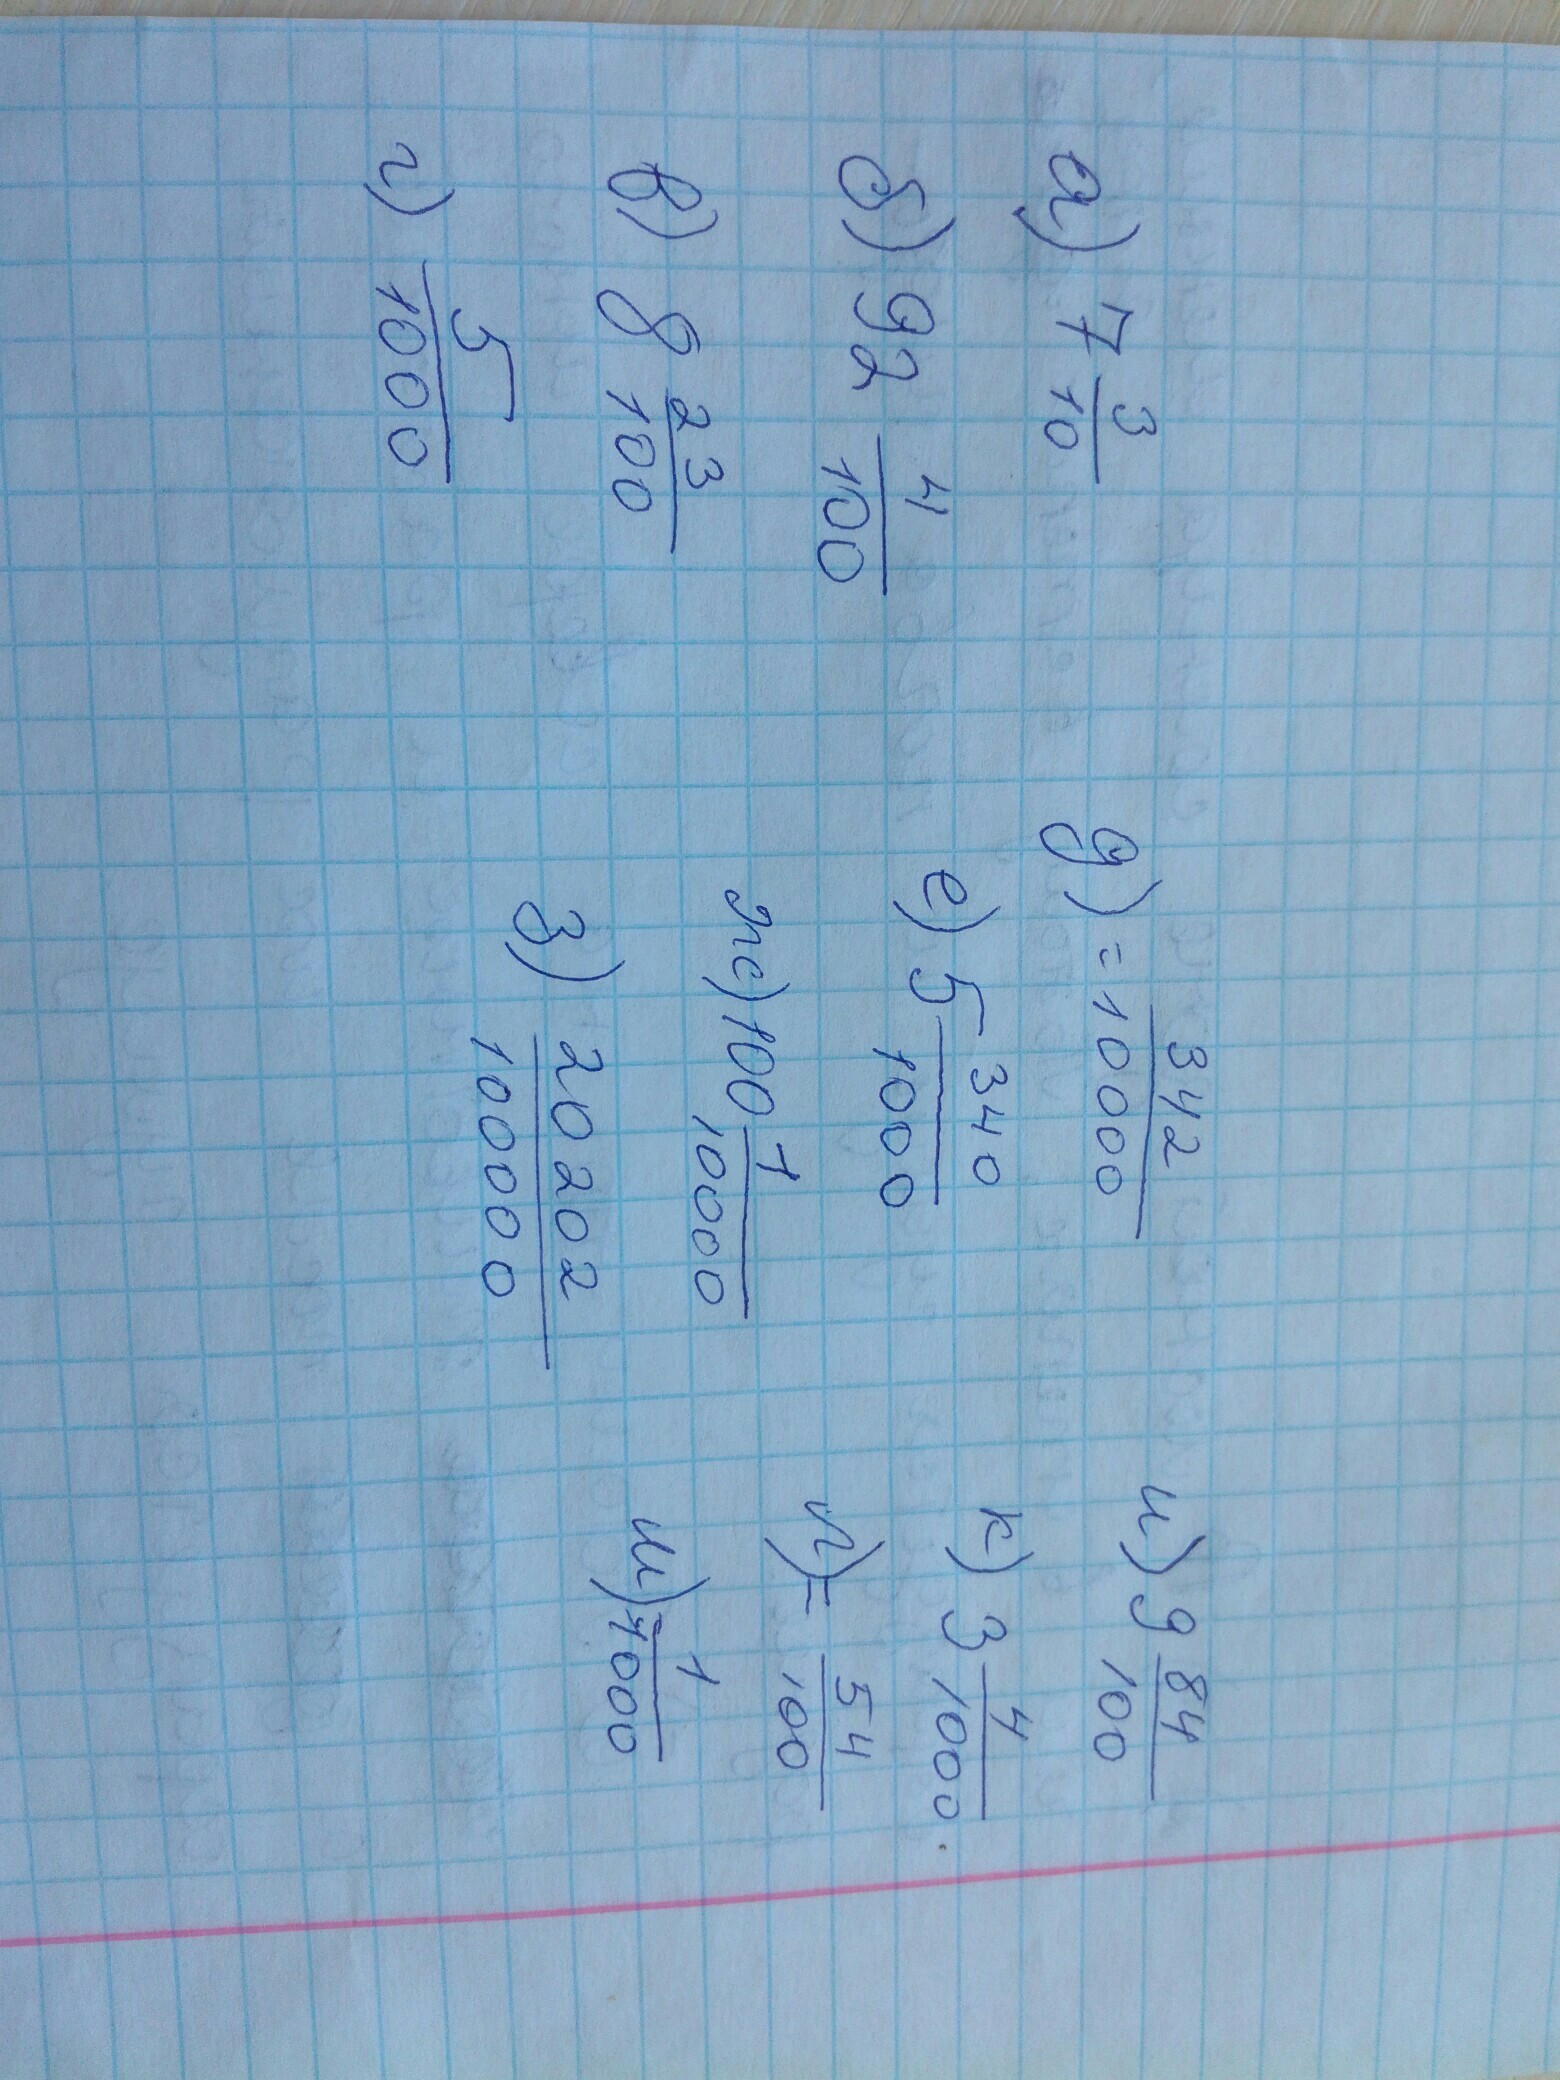 а) 7 3/10
б) 92 4/100
в) 8 23/100
г) 5/1000
д) = 342/10000
е) 5 340/1000
ж) 100 1/10000
з) 20202/10000
и) 9 84/100
к) 3 4/1000
л) = 54/100
м) = 1/1000